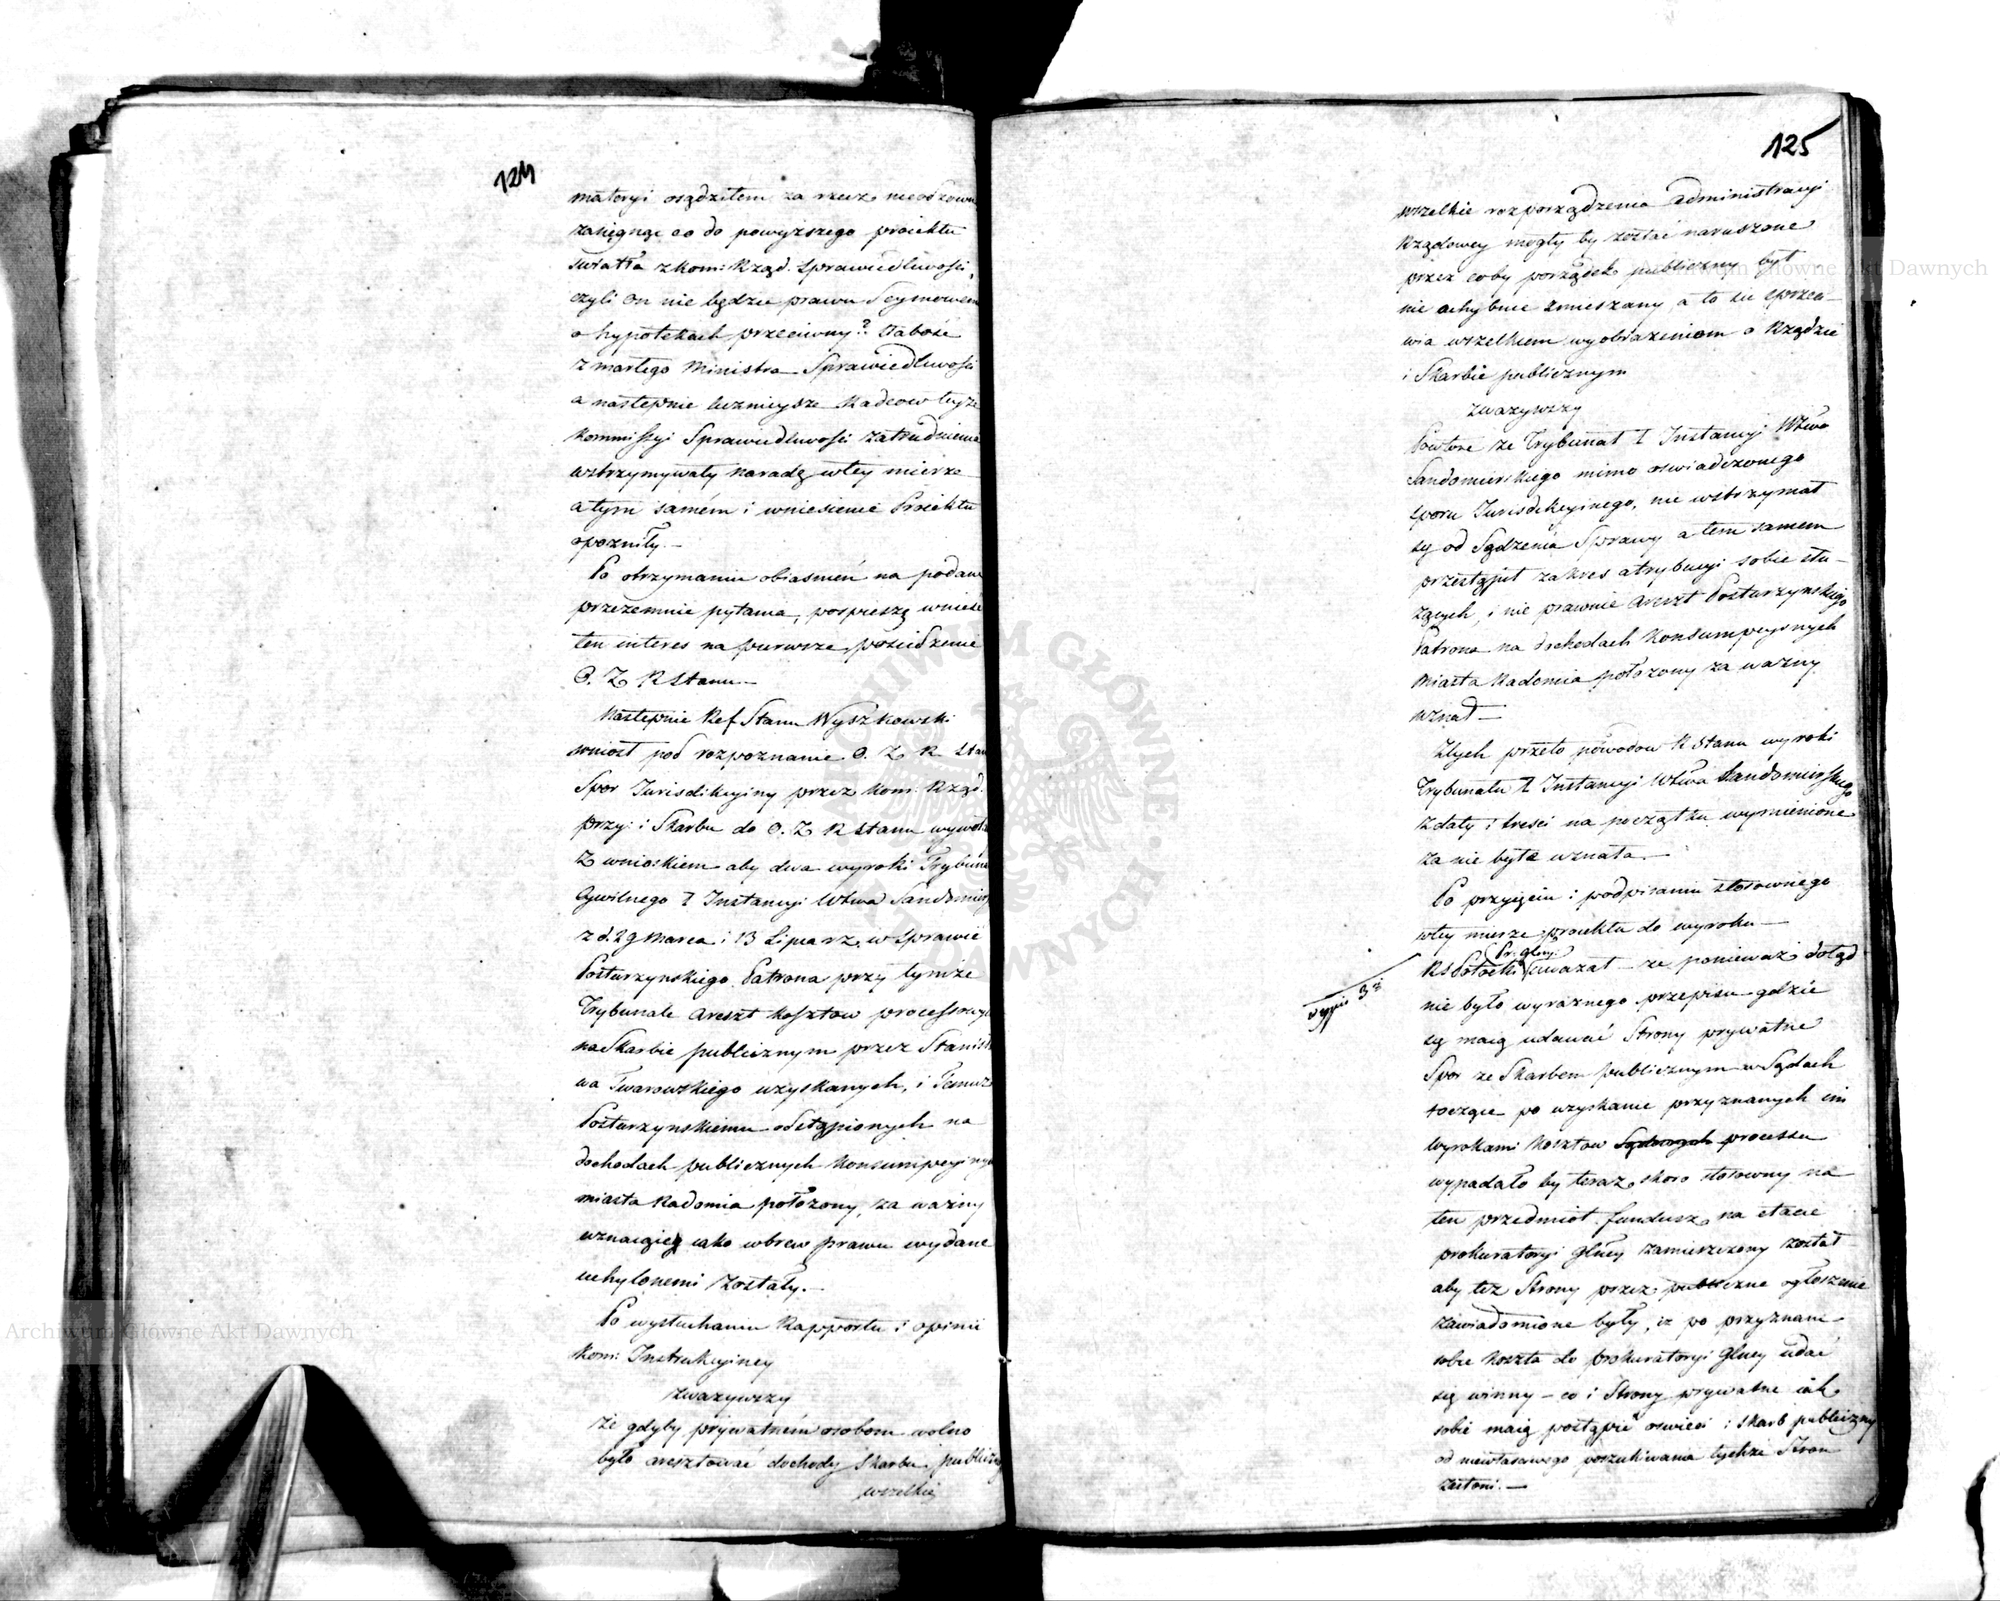 124
materyi osądziłem za rzecz nieodzown
zasięgnąć co do powyższego proiektu
światła z Kom: Rząd. Sprawiedliwości,
czyli on nie będzie prawu Seymowem
o hypotekach przeciwny? Słabość
zmarłego Ministra Sprawiedliwości
a następnie licznieysze Radców teyże
Kommissyi Sprawiedliwości zatrudnienia
wstrzymywały naradę w tey mierze
a tym samém i wniesienie Proiektu
opozniły. —
Po otrzymaniu obiasnień na podane
przezemnie pytania, pospieszę wnieść
ten interes na pierwsze posiedzenie
O. Z. R Stanu —
Następnie Ref Stanu Wyszkowski
wniosł pod rozpoznanie O. Z. R Stan
Spor Jurisdikcyiny przez Kom: Rząd.
przy: i Skarbu do O. Z R Stanu wywoła
Z wnioskiem aby dwa wyroki Trybuna
Cywilnego I Instancyi Wtwa Sandomirs
z d. 29 Marca i 13 Lipca rz. w Sprawie
Posturzynskiego Patrona przy tymże
Trybunale areszt kosztow processowyc
na Skarbie publicznym przez Stanisła
wa Twarowskiego uzyskanych, i Temuż
Posturzynskiemu odstąpionych na
dochodach publicznych Konsumpcyinyc
miasta Radomia położony, za ważny
uznaiące iako wbrew prawu wydane
uchylonemi zostały. —
Po wysłuchaniu Rapportu i opinii
Kom: Instrukcyiney
zważywszy
że gdyby prywatném osobom wolno
było aresztować dochody Skarbu publiczn
wszelkie
125
wszelkie rozporządzenia administracyi
Rządowey mogły by zostać naruszone
przez coby porządek publiczny był
nie achybnie zmieszany, a to się sprzeci-
wia wszelkiem wyobrażeniom o Rządzie
i Skarbie publicznym
zważywszy
Powtore że Trybunał I Instancyi Wtwa
Sandomirskiego mimo oswiadczonego
sporu Jurisdikcyinego, nie wstrzymał
się od Sądzenia Sprawy a tem samem
przestąpił zakres atrybucyi sobie słu-
żących, i nie prawnie Areszt Posturzynskiego
Patrona na dochodach Konsumpcyinych
Miasta Radomia położony za ważny
uznał —
Z tych przeto powodow R Stanu wyroki
Trybunału I Instancyi Wtwa Sandomirskiego
z daty i tresci na początku wymienione
za nie byłe uznała. —
Po przyięciu i podpisaniu stosownego
w tey mierze proiektu do wyroku —
(Pr: głny:)
wypis 3ci
RS Potocki uważał — że ponieważ dotąd
nie było wyraznego przepisu gdzie
się maią udawać Strony prywatne
Spor ze Skarbem publicznym w Sądach
toczące po uzyskanie przyznanych im
wyrokami kosztow Sądowych processu
wypadało by teraz skoro stosowny na
ten przedmiot fundusz na etacie
prokuratoryi Głney zamieszczony został
aby też Strony przez publiczne ogłoszenie
zawiadomione były, iż po przyznane
sobie koszta do prokuratoryi Głney udać
się winny — co i Strony prywatne iak
sobie maią postąpić oswieci i Skarb publiczny
od niewłasciwego poszukiwania tychże Stron
zasłoni. —
Archiwum Główne Akt Dawnych
Archiwum Główne Akt Dawnych
ARCHIWUM GŁÓWNE AKT DAWNYCH